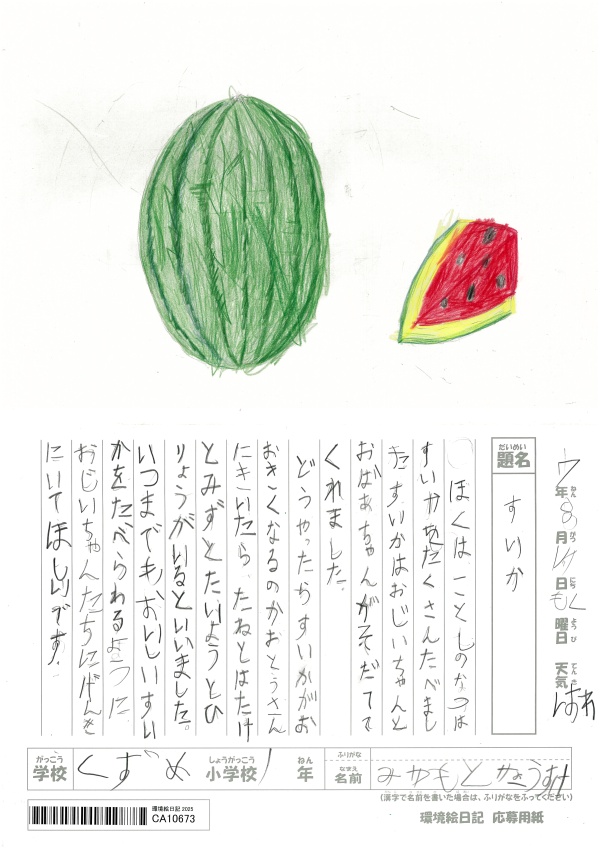 7年8月14日もく曜日 天気はれ
ねん がつ にち ようび てんき
だいめい
題名 すいか
ぼくはことしのなつは
すいかをたくさんたべまし
た。すいかはおじいちゃんと
おばあちゃんがそだてて
くれました。
どうやったらすいかがお
おきくなるのかおとうさん
にきいたら、たねとはたけ
とみずとたいようとひ
りょうがいるといいました。
いつまでもおいしいすい
かをたべられるように
おじいちゃんたちにげんき
にいてほしいです。
がっこう しょうがっこう ねん ふりがな
学校 くずめ 小学校 1年 なまえ 名前
(漢字で名前を書いた場合は、ふりがなをふってください)
環境絵日記 2025
CA10673
環境絵日記 応募用紙